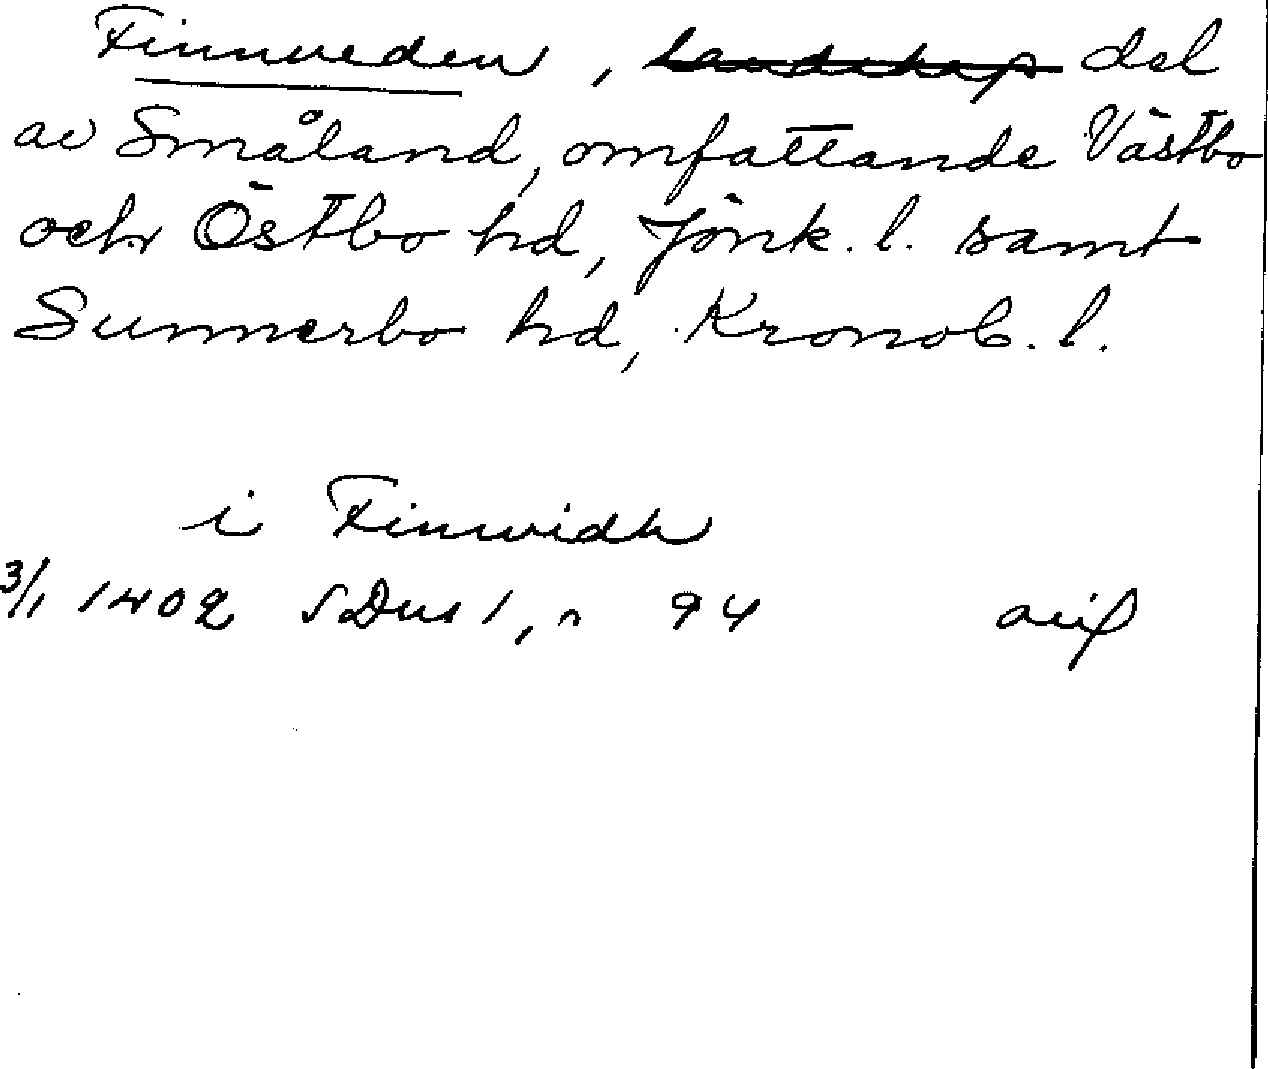 Finnveden, landskap del
av Småland, omfattande Västbo
och Östbo hd, Jönk. l. samt
Sunnerbo hd, Kronob. l.
i Finwidh
3/1 1402 SDns 1, s 94 avs